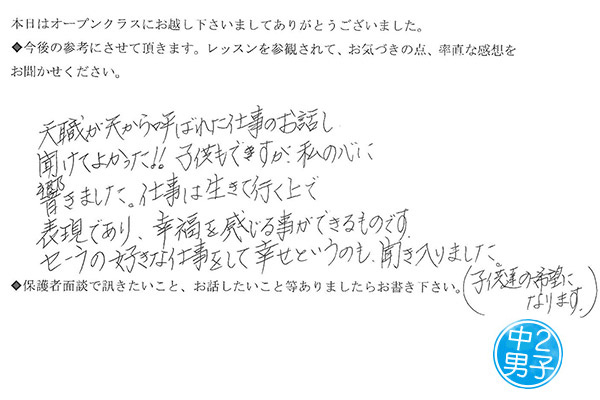 本日はオープンクラスにお越し下さいましてありがとうございました。
◆今後の参考にさせて頂きます。レッスンを参観されて、お気づきの点、率直な感想を
お聞かせください。
天職が天から呼ばれた仕事のお話し
聞けてよかった!! 子供もですが、私の心に
響きました。仕事は生きて行く上で
表現であり、幸福を感じる事ができるものです。
セーラの好きな仕事をして幸せというのも、聞き入りました。
(子供達の希望に
なります。)
◆保護者面談で訊きたいこと、お話したいこと等ありましたらお書き下さい。
中2
男子